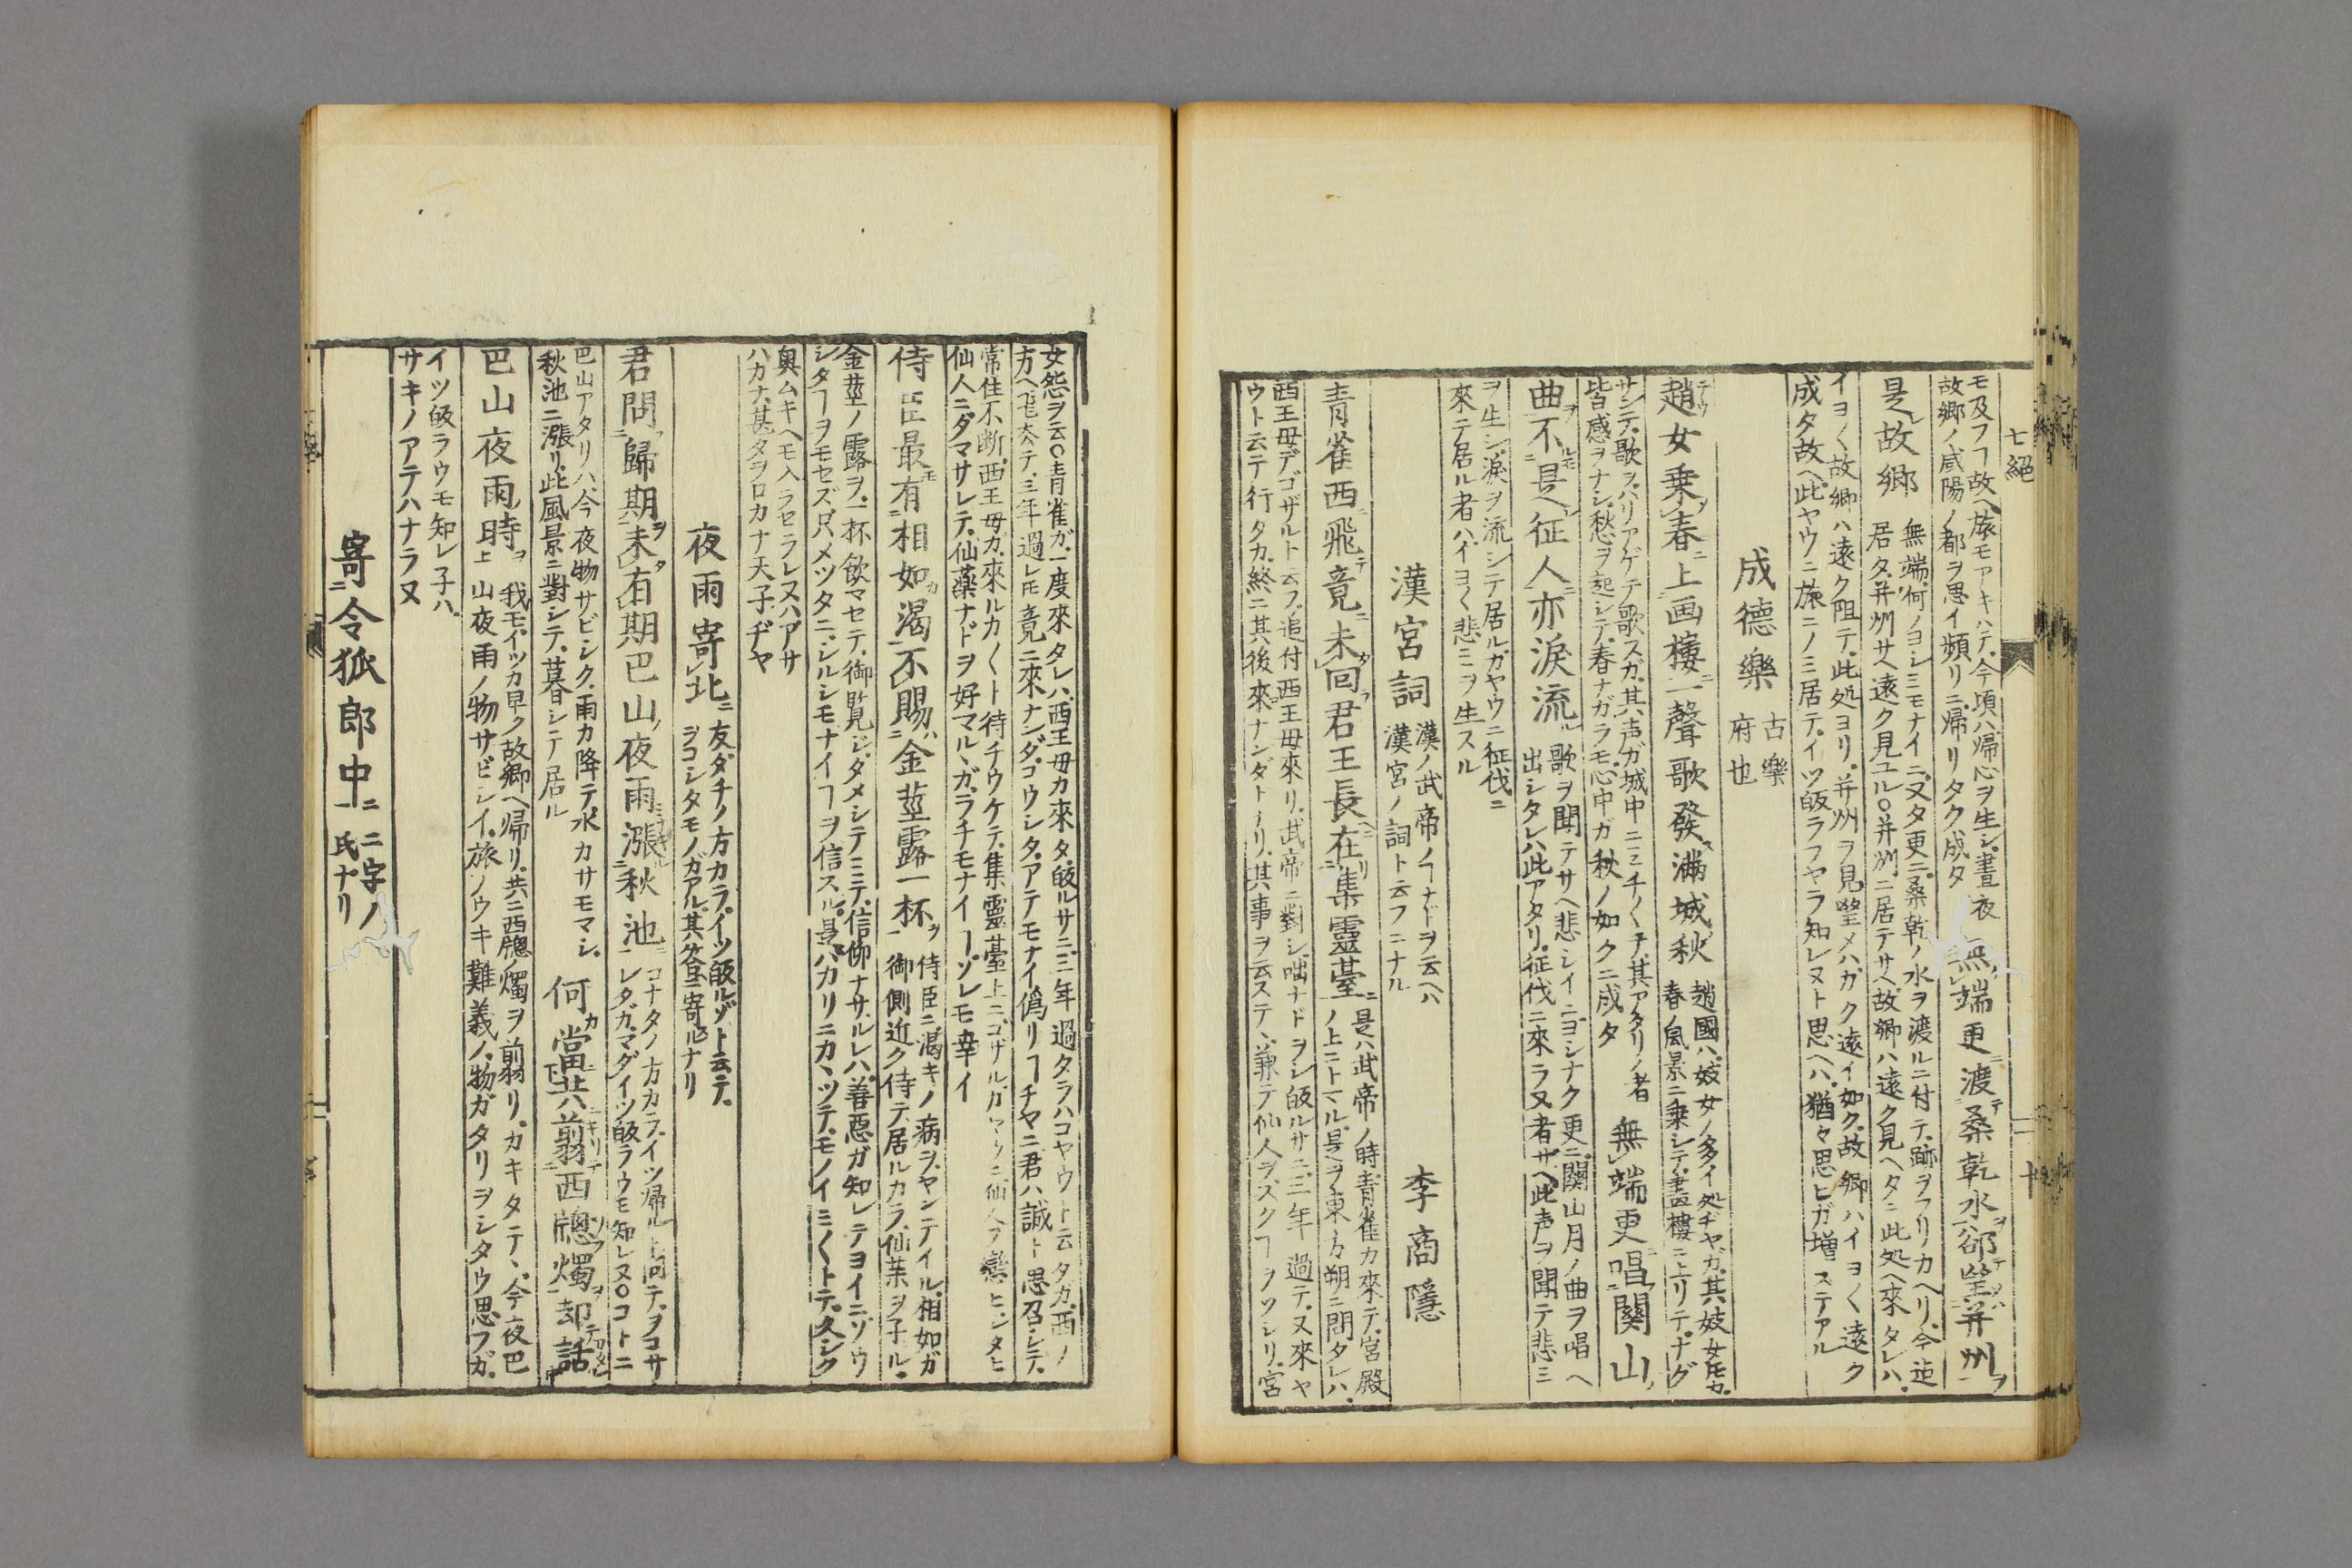 七絕
モ及フ﹁故ヘ旅モアキハテ今頃ハ歸心ヲ生シ晝夜
故鄉ノ咸陽ノ都ヲ思イ頻リニ帰リタク成タ
無端更渡桑乾水卻望并州
是故鄉
無端何ノヨシミモナイニ又タ更ニ桑乾ノ水ヲ渡ルニ付テ跡ヲフリカヘリ今迄
居タ并州サヘ遠ク見ユル○并州ニ居テサヘ故鄉ハ遠ク見ヘタニ此処ヘ來タレハ
イヨ〱故鄉ハ遠ク阻テ此処ヨリ并州ヲ見望メハガク遠イ如ク故鄉ハイヨ〱遠ク
成タ故ヘ此ヤウニ旅ニノミ居テイツ皈ラフヤラ知レヌト思ヘハ猶々思ヒガ増ステアル
成德樂
古樂
府也
趙女乗春上画樓一聲歌發滿城秋
趙國ハ妓女ノ多イ処ヂヤガ其妓女𪜈カ
春ノ風景ニ乗シテ畫樓ニ上リテナグ
サンテ歌ヲハリアゲテ歌スガ其声ガ城中ニミチ〱テ其アタリノ者
皆感ヲナシ愁ヲ起シテ春ナガラモ心中ガ秋ノ如クニ成タ
無端更唱關山
曲不是征人亦淚流
歌ヲ聞テサヘ悲シイニヨシナク更ニ關山月ノ曲ヲ唱ヘ
出シタレハ此アタリ征伐ニ來ラヌ者サヘ此声ヲ聞テ悲ミ
ヲ生シ淚ヲ流シテ居ルガヤウニ征伐ニ
來テ居ル者ハイヨ〱悲ミヲ生スル
漢宮詞
漢ノ武帝ノ﹁ナドヲ云ヘハ
漢宮ノ詞ト云フニナル
李商隱
青雀西飛竟未回君王長在集靈臺
是ハ武帝ノ時青雀カ來テ宮殿
ノ上ニトマル是ヲ東方朔ニ問タレハ
西王母デゴザルト云フ追付西王母來リ武帝ニ對シ咄ナドヲシ皈ルサニ三年過テ又來ヤ
ウト云テ行タカ終ニ其後來ナンダトナリ其事ヲ云ステ兼テ仙人ヲスク﹁ヲソシリ宮
女怨ヲ云○青雀ガ一度來タレハ西王母カ來タ皈ルサニ三年過タラハコヤウト云タカ西ノ
方ヘ飛去テ三年過レ𪜈竟ニ來ナンダコウシタアテモナイ僞リ﹁チヤニ君ハ誠ト思召シテ
常住不断西王母カ來ルカ〱ト待チウケテ集靈臺上ニゴザルガ
仙人ニダマサレテ仙藥ナドヲ好マルヽガラチモナイ﹁ソレモ幸イ
侍臣最有相如渴不賜金莖露一杯
侍臣ニ渴キノ病ヲヤンテイル相如ガ
御側近ク侍テ居ルカラ仙藥ヲ子ル
金莖ノ露ヲ一杯飲マセテ御覧シダメシテミテ信仰ナサルレハ善惡ガ知レテヨイニソウ
シタ﹁ヲモセズ只メツタニシルシモナイ﹁ヲ信スル是ハカリニカヽツテモノイミ〱トテ久シク
奥ムキヘモ入ラセラレヌハアサ
ハカナ甚タヲロカナ天子ヂヤ
夜雨寄北
友ダチノ方カライツ皈ルゾト云テ
ヲコシタモノガアル其答ニ寄ルナリ
君問歸期未有期巴山夜雨漲秋池
コナタノ方カライツ帰ルト問テヲコサ
レタガマダイツ皈ラウモ知レヌ○コトニ
巴山アタリハ今夜物サビシク雨カ降テ水カサモマシ
秋池ニ漲リ此風景ニ對シテ暮シテ居ル
何當共翦西牕燭却話
巴山夜雨時
我モイツカ早ク故鄉ヘ帰リ共ニ西牕ノ燭ヲ翦リカキタテヽ今夜巴
山夜雨ノ物サビシイ旅ソウキ難義ノ物ガタリヲシタウ思フガ
イツ皈ラウモ知レ子ハ
サキノアテハナラヌ
寄令狐郎中
二字ノ
氏ナリ